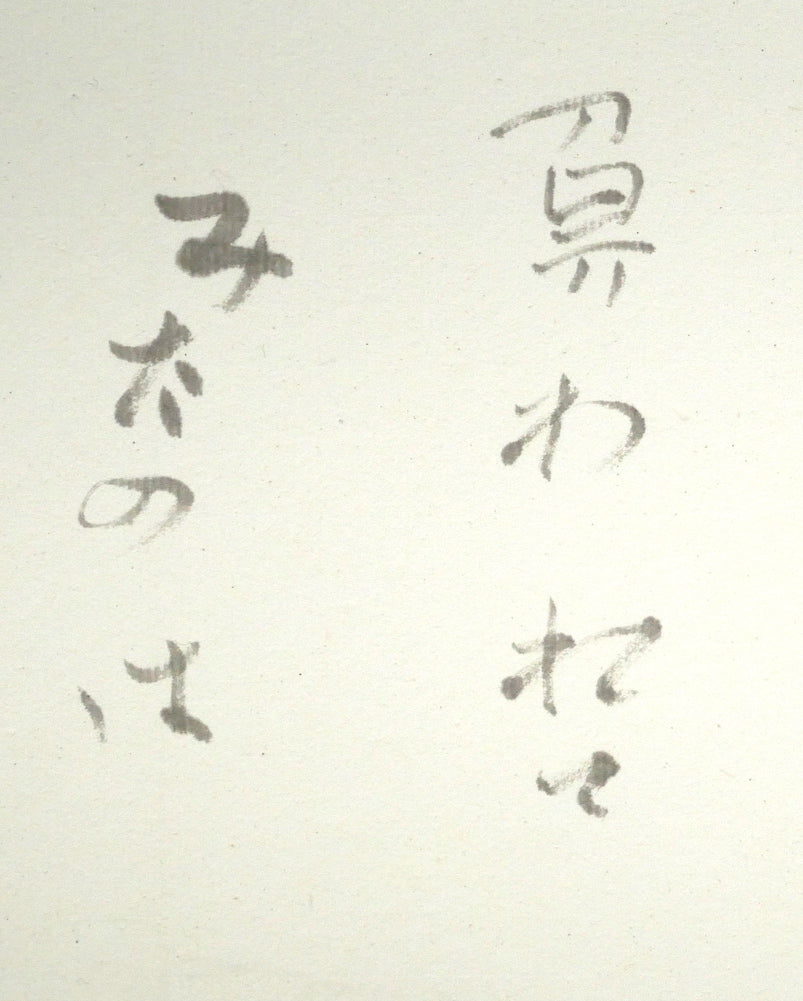 負われて
みたのは